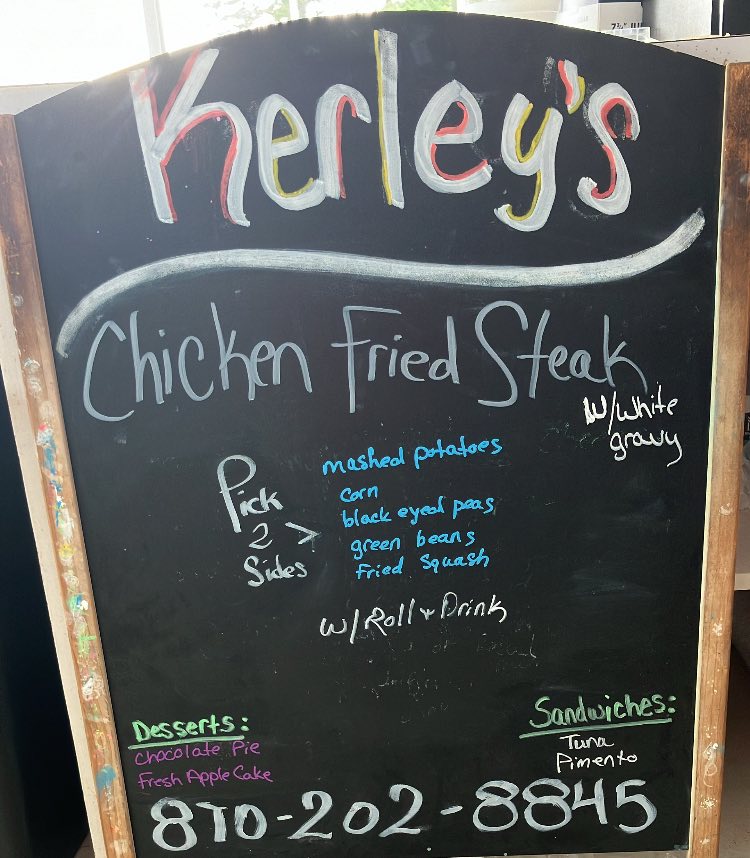 Kerley's
Chicken Fried Steak
W/White
gravy
Pick
2 >
Sides
mashed potatoes
corn
black eyed peas
green beans
Fried Squash
W/Roll + Drink
Desserts:
Chocolate Pie
Fresh Apple Cake
Sandwiches:
Tuna
Pimento
870-202-8845